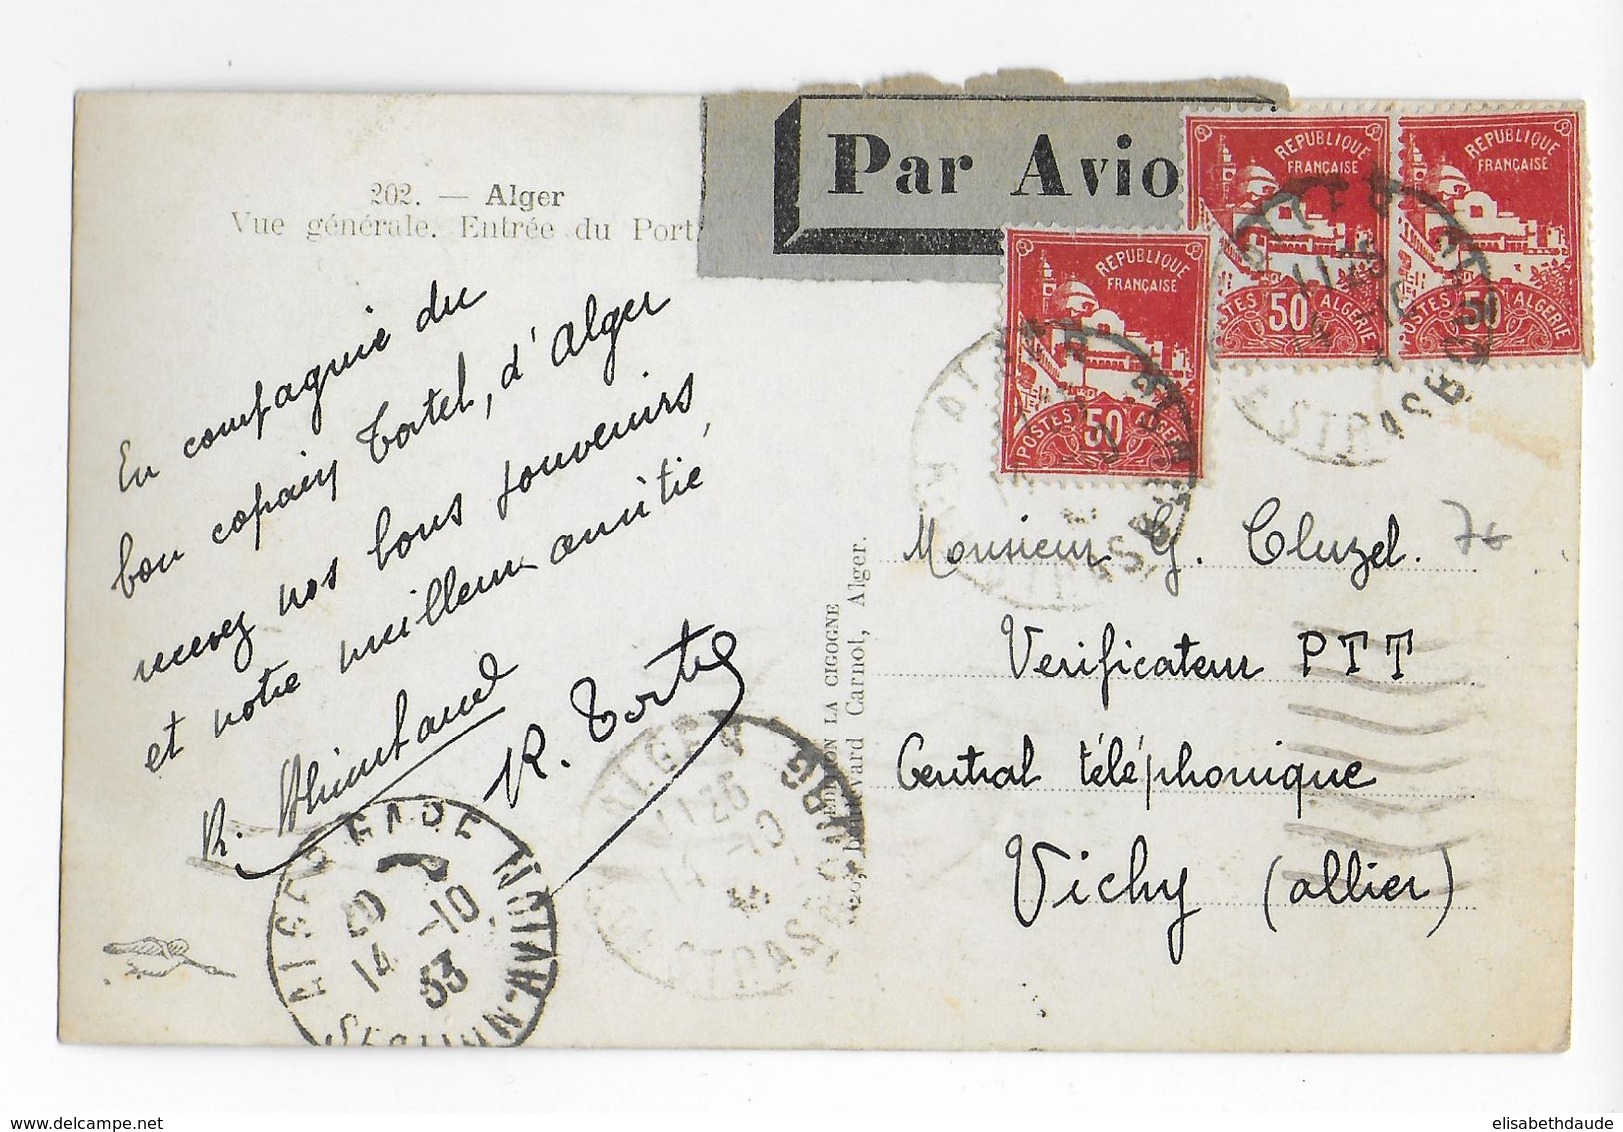 202. — Alger
Vue générale. Entrée du Port
Par Avio
REPUBLIQUE
FRANÇAISE
50
POSTES ALGERIE
REPUBLIQUE
FRANÇAISE
50
POSTES ALGERIE
REPUBLIQUE
FRANÇAISE
50
POSTES ALGERIE
En compagnie du
bon copain Tortel, d'Alger
recevez nos bons souvenirs
et notre meilleure amitié,
R.
R. Tortel
Monsieur G. Cluzel.
Verificateur PTT
Central téléphonique
Vichy (allier)
EDITION LA CIGOGNE
Boulevard Carnot, Alger.
ALGER GARE
AVION
20
14 -10
33
ALGER
STRASBOURG
1125
14
76
elisabethdaude